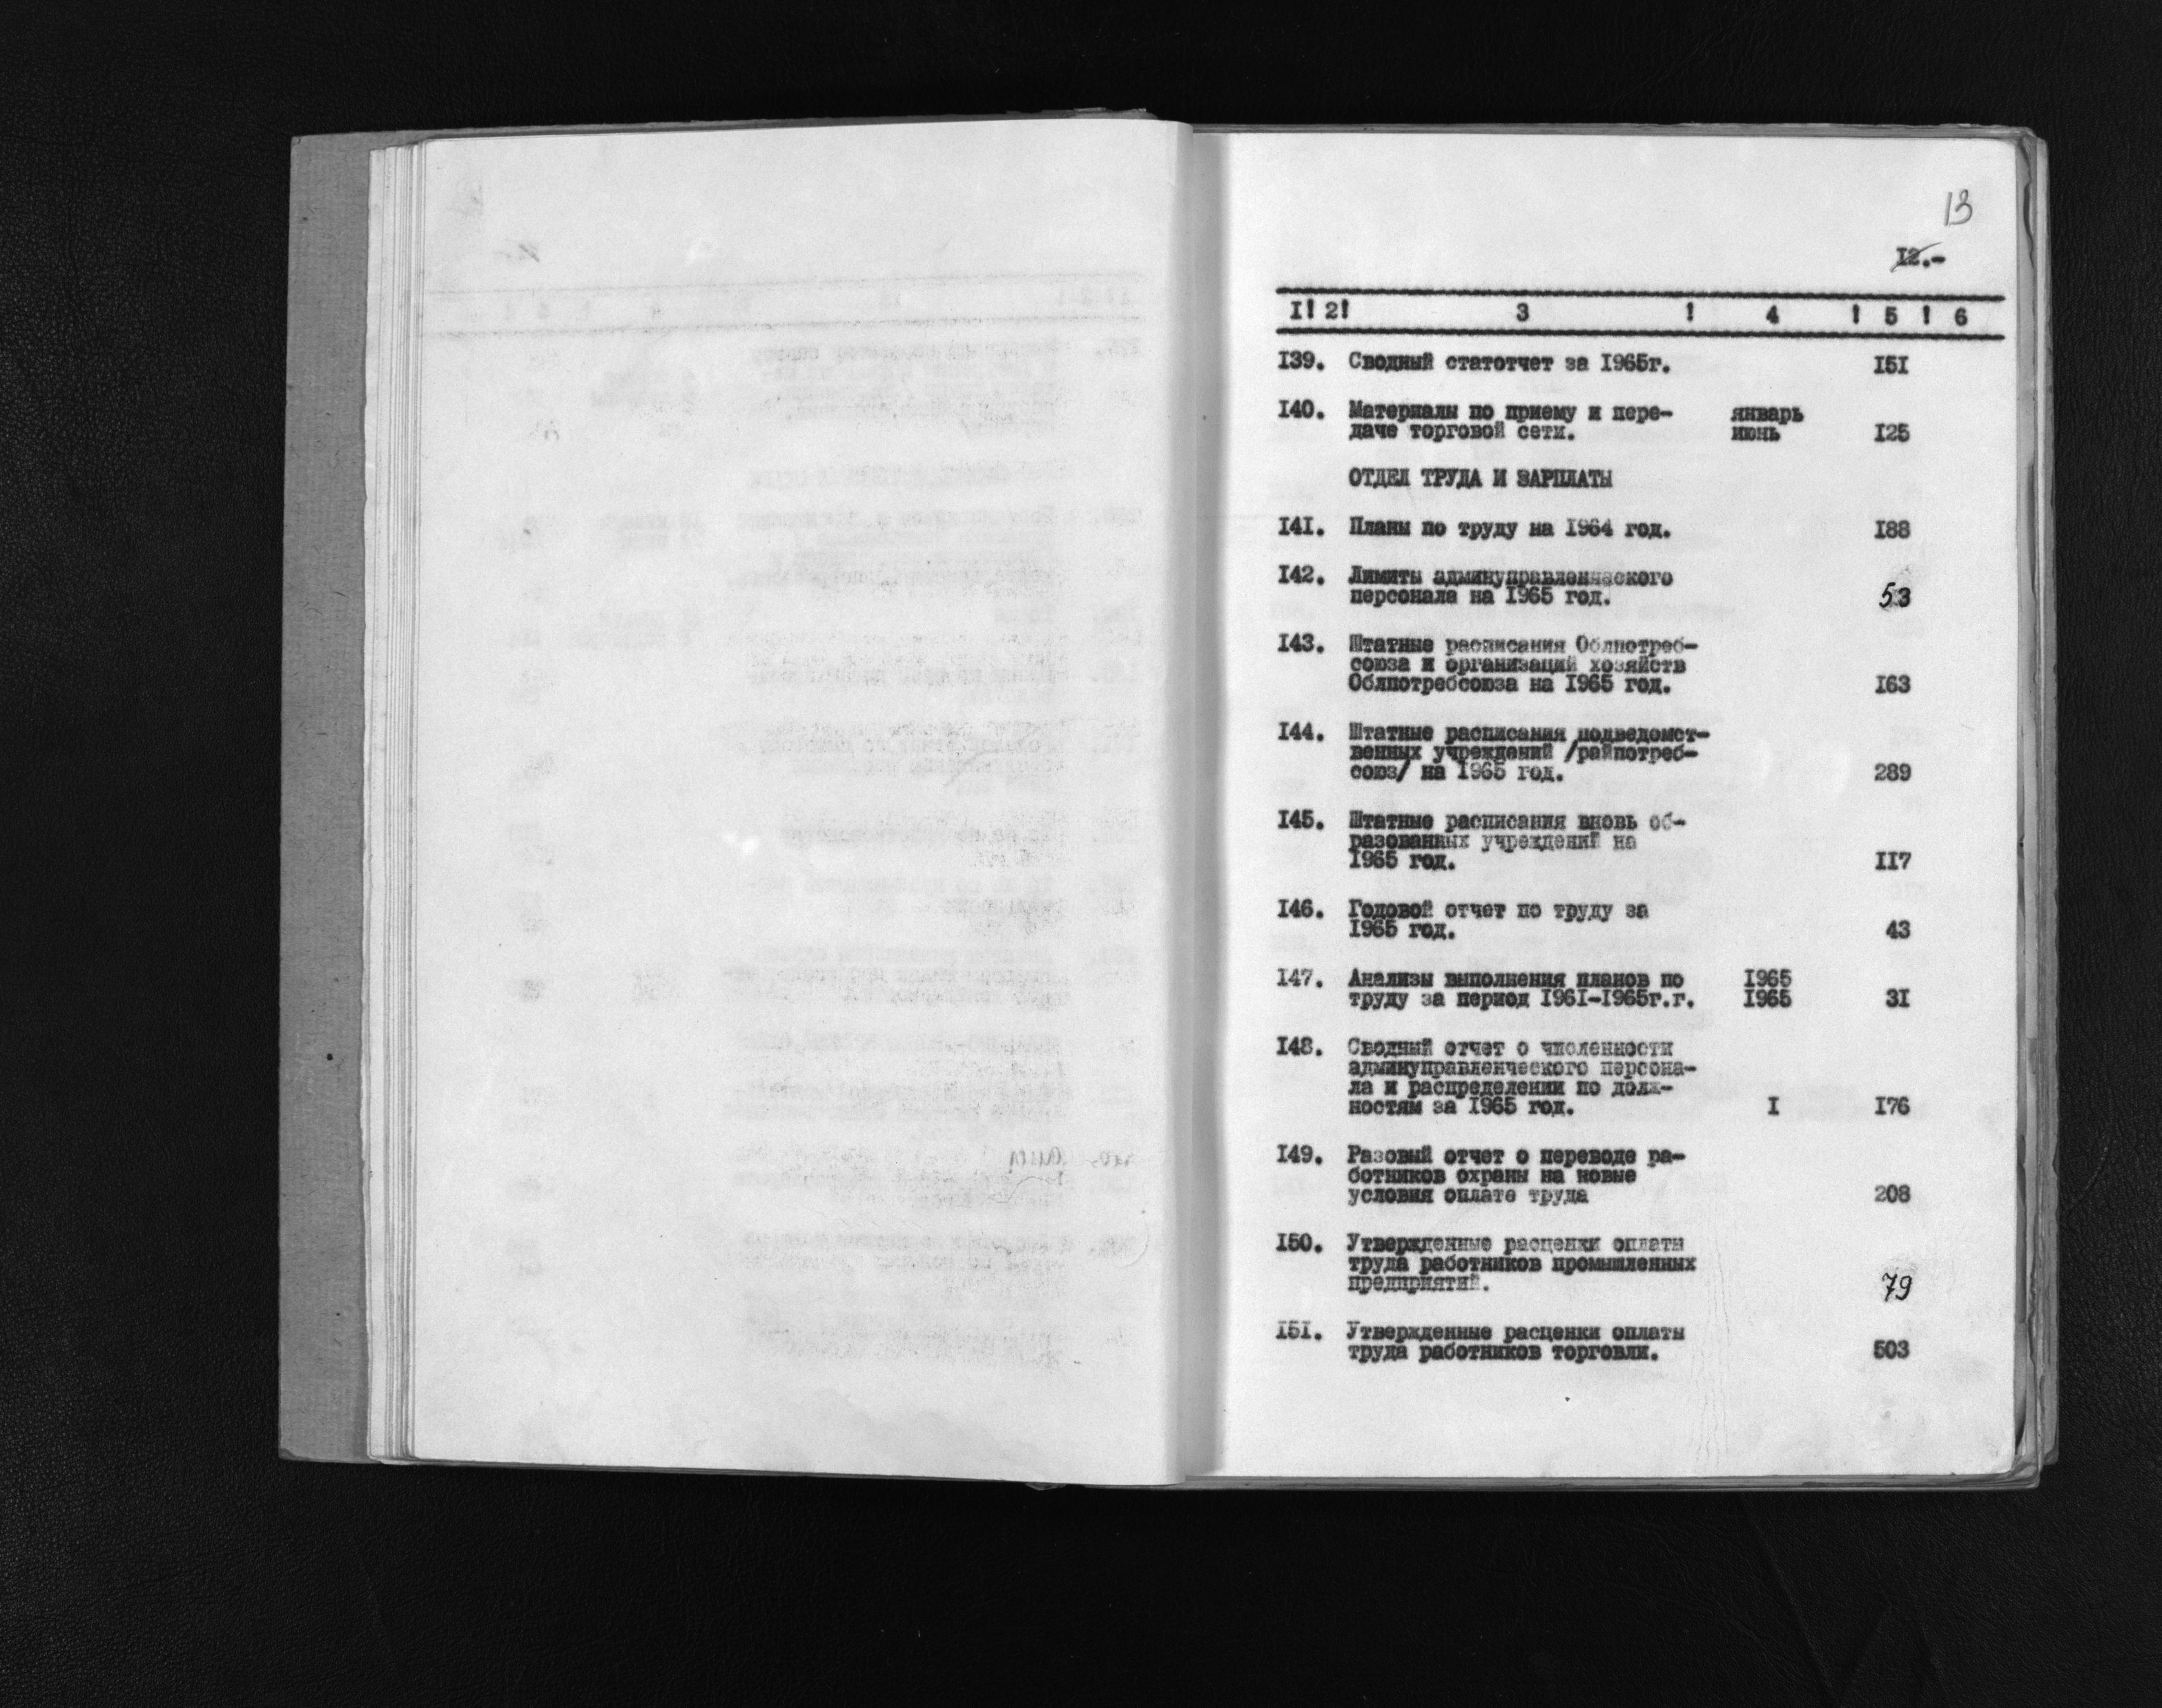 13
12.-
I! 2! 3 ! 4 ! 5 ! 6
139. Сводный статотчет за 1965г. 151
140. Материалы по приему и пере- январь
даче торговой сети. июнь 125
ОТДЕЛ ТРУДА И ЗАРПЛАТЫ
141. Планы по труду на 1964 год. 188
142. Лимиты админуправленческого
персонала на 1965 год. 53
143. Штатные расписания Облпотреб-
союза и организаций хозяйств
Облпотребсоюза на 1965 год. 163
144. Штатные расписания подведомст-
венных учреждений /райпотреб-
союз/ на 1965 год. 289
145. Штатные расписания вновь об-
разованных учреждений на
1965 год. 117
146. Годовой отчет по труду за
1965 год. 43
147. Анализы выполнения планов по 1965
труду за период 1961-1965г.г. 1965 31
148. Сводный отчет о численности
админуправленческого персона-
ла и распределении по долж-
ностям за 1965 год. I 176
149. Разовый отчет о переводе ра-
ботников охраны на новые
условия оплате труда 208
150. Утвержденные расценки оплаты
труда работников промышленных
предприятий. 79
151. Утвержденные расценки оплаты
труда работников торговли. 503